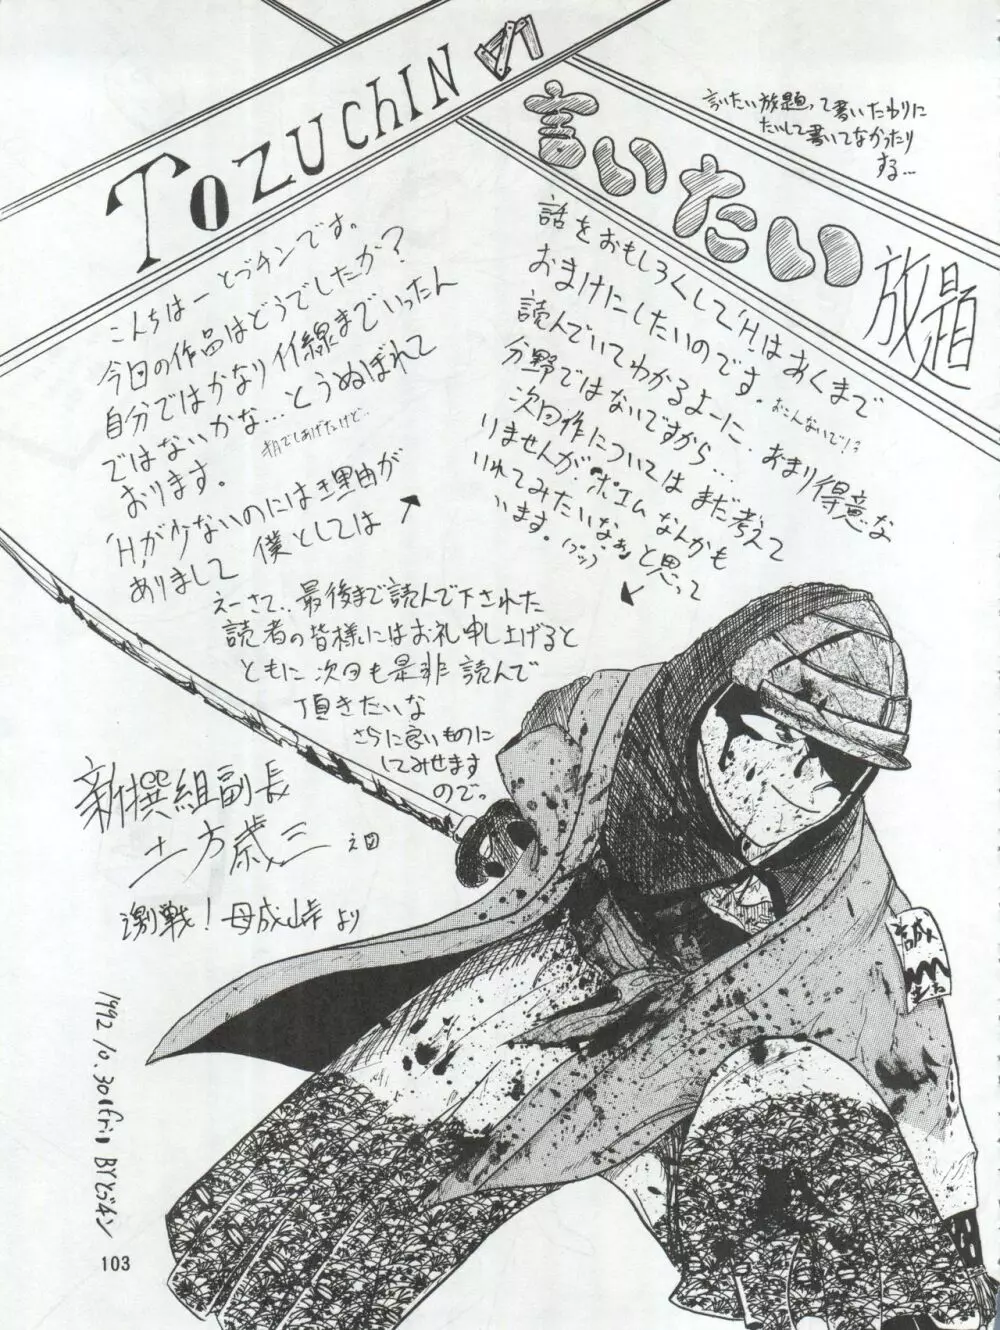 TOZUCHINの
言いたい
放題
言いたい放題って書いたわりに
たいして書いてなかったり
する…
こんちはーとづチンです。
今回の作品はどうでしたか？
自分ではかなりイイ線までいったん
ではないかな…とうぬぼれて
おります。
'H'が少ないのには理由が
ありまして 僕としては
話をおもしろくして'H'はあくまで
おまけにーしたいのです。
おこんないで!?
読んでいてわかるよーに…あまり得意な
分野ではないですから…
次回作についてはまだ考えて
りませんが'ポエム'なんかも
いれてみたいなぁと思って
います。(プップ)
えーさて..最後まで読んで下された
読者の皆様にはお礼申し上げると
ともに次回も是非読んで
頂きたいな
さらに良いものに
してみせます
ので。
新撰組副長
土方歳三 之図
激戦！母成峠より
誠
1992 10.30 (fri) BYとづチン
103